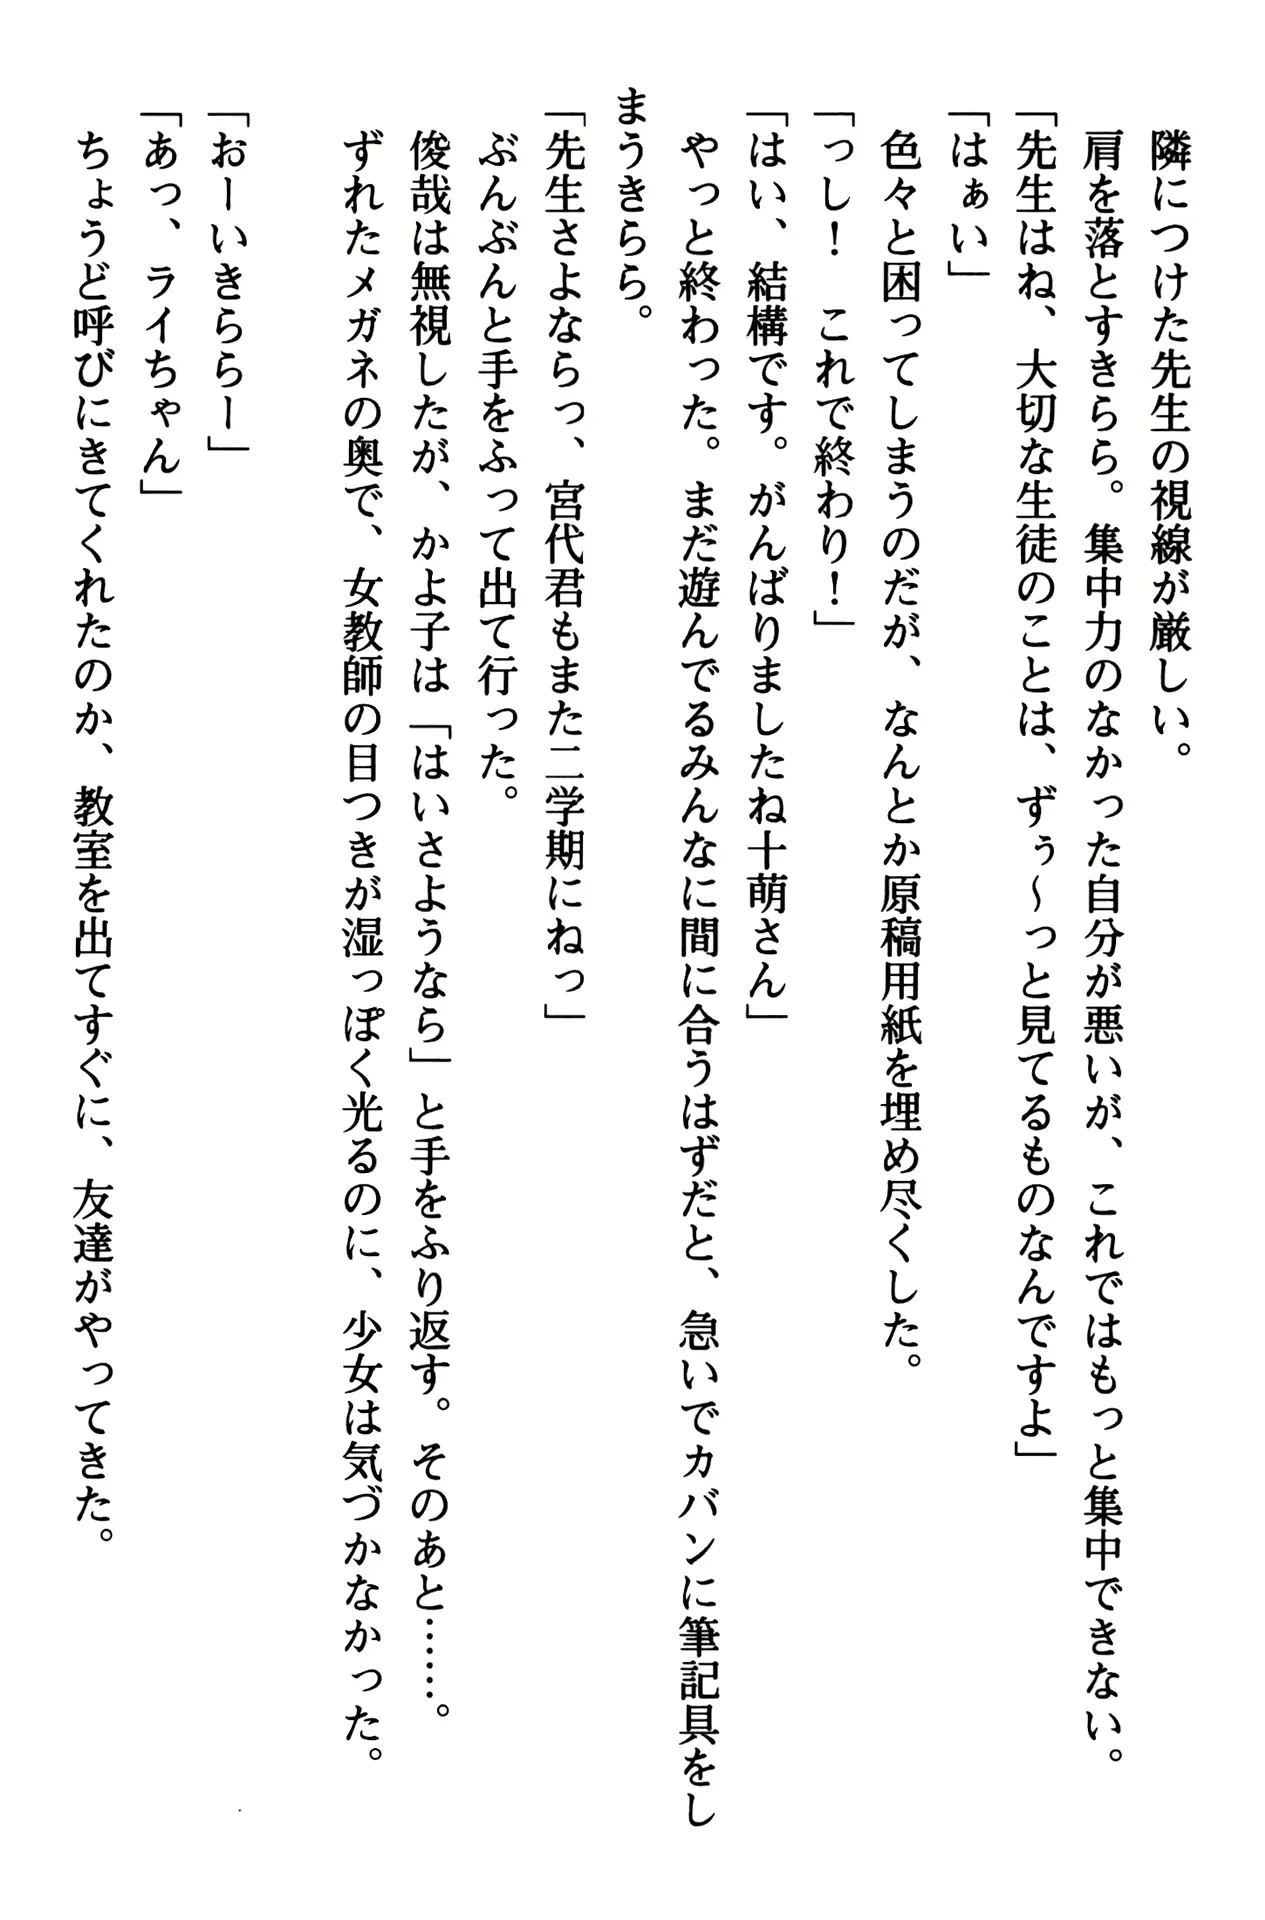 隣につけた先生の視線が厳しい。
肩を落とすきらら。集中力のなかった自分が悪いが、これではもっと集中できない。
「先生はね、大切な生徒のことは、ずぅ～っと見てるものなんですよ」
「はぁい」
色々と困ってしまうのだが、なんとか原稿用紙を埋め尽くした。
「っし！　これで終わり！」
「はい、結構です。がんばりましたね十萌さん」
やっと終わった。まだ遊んでるみんなに間に合うはずだと、急いでカバンに筆記具をし
まうきらら。
「先生さよならっ、宮代君もまた二学期にねっ」
ぶんぶんと手をふって出て行った。
俊哉は無視したが、かよ子は「はいさようなら」と手をふり返す。そのあと……。
ずれたメガネの奥で、女教師の目つきが湿っぽく光るのに、少女は気づかなかった。
「おーいきららー」
「あっ、ライちゃん」
ちょうど呼びにきてくれたのか、教室を出てすぐに、友達がやってきた。